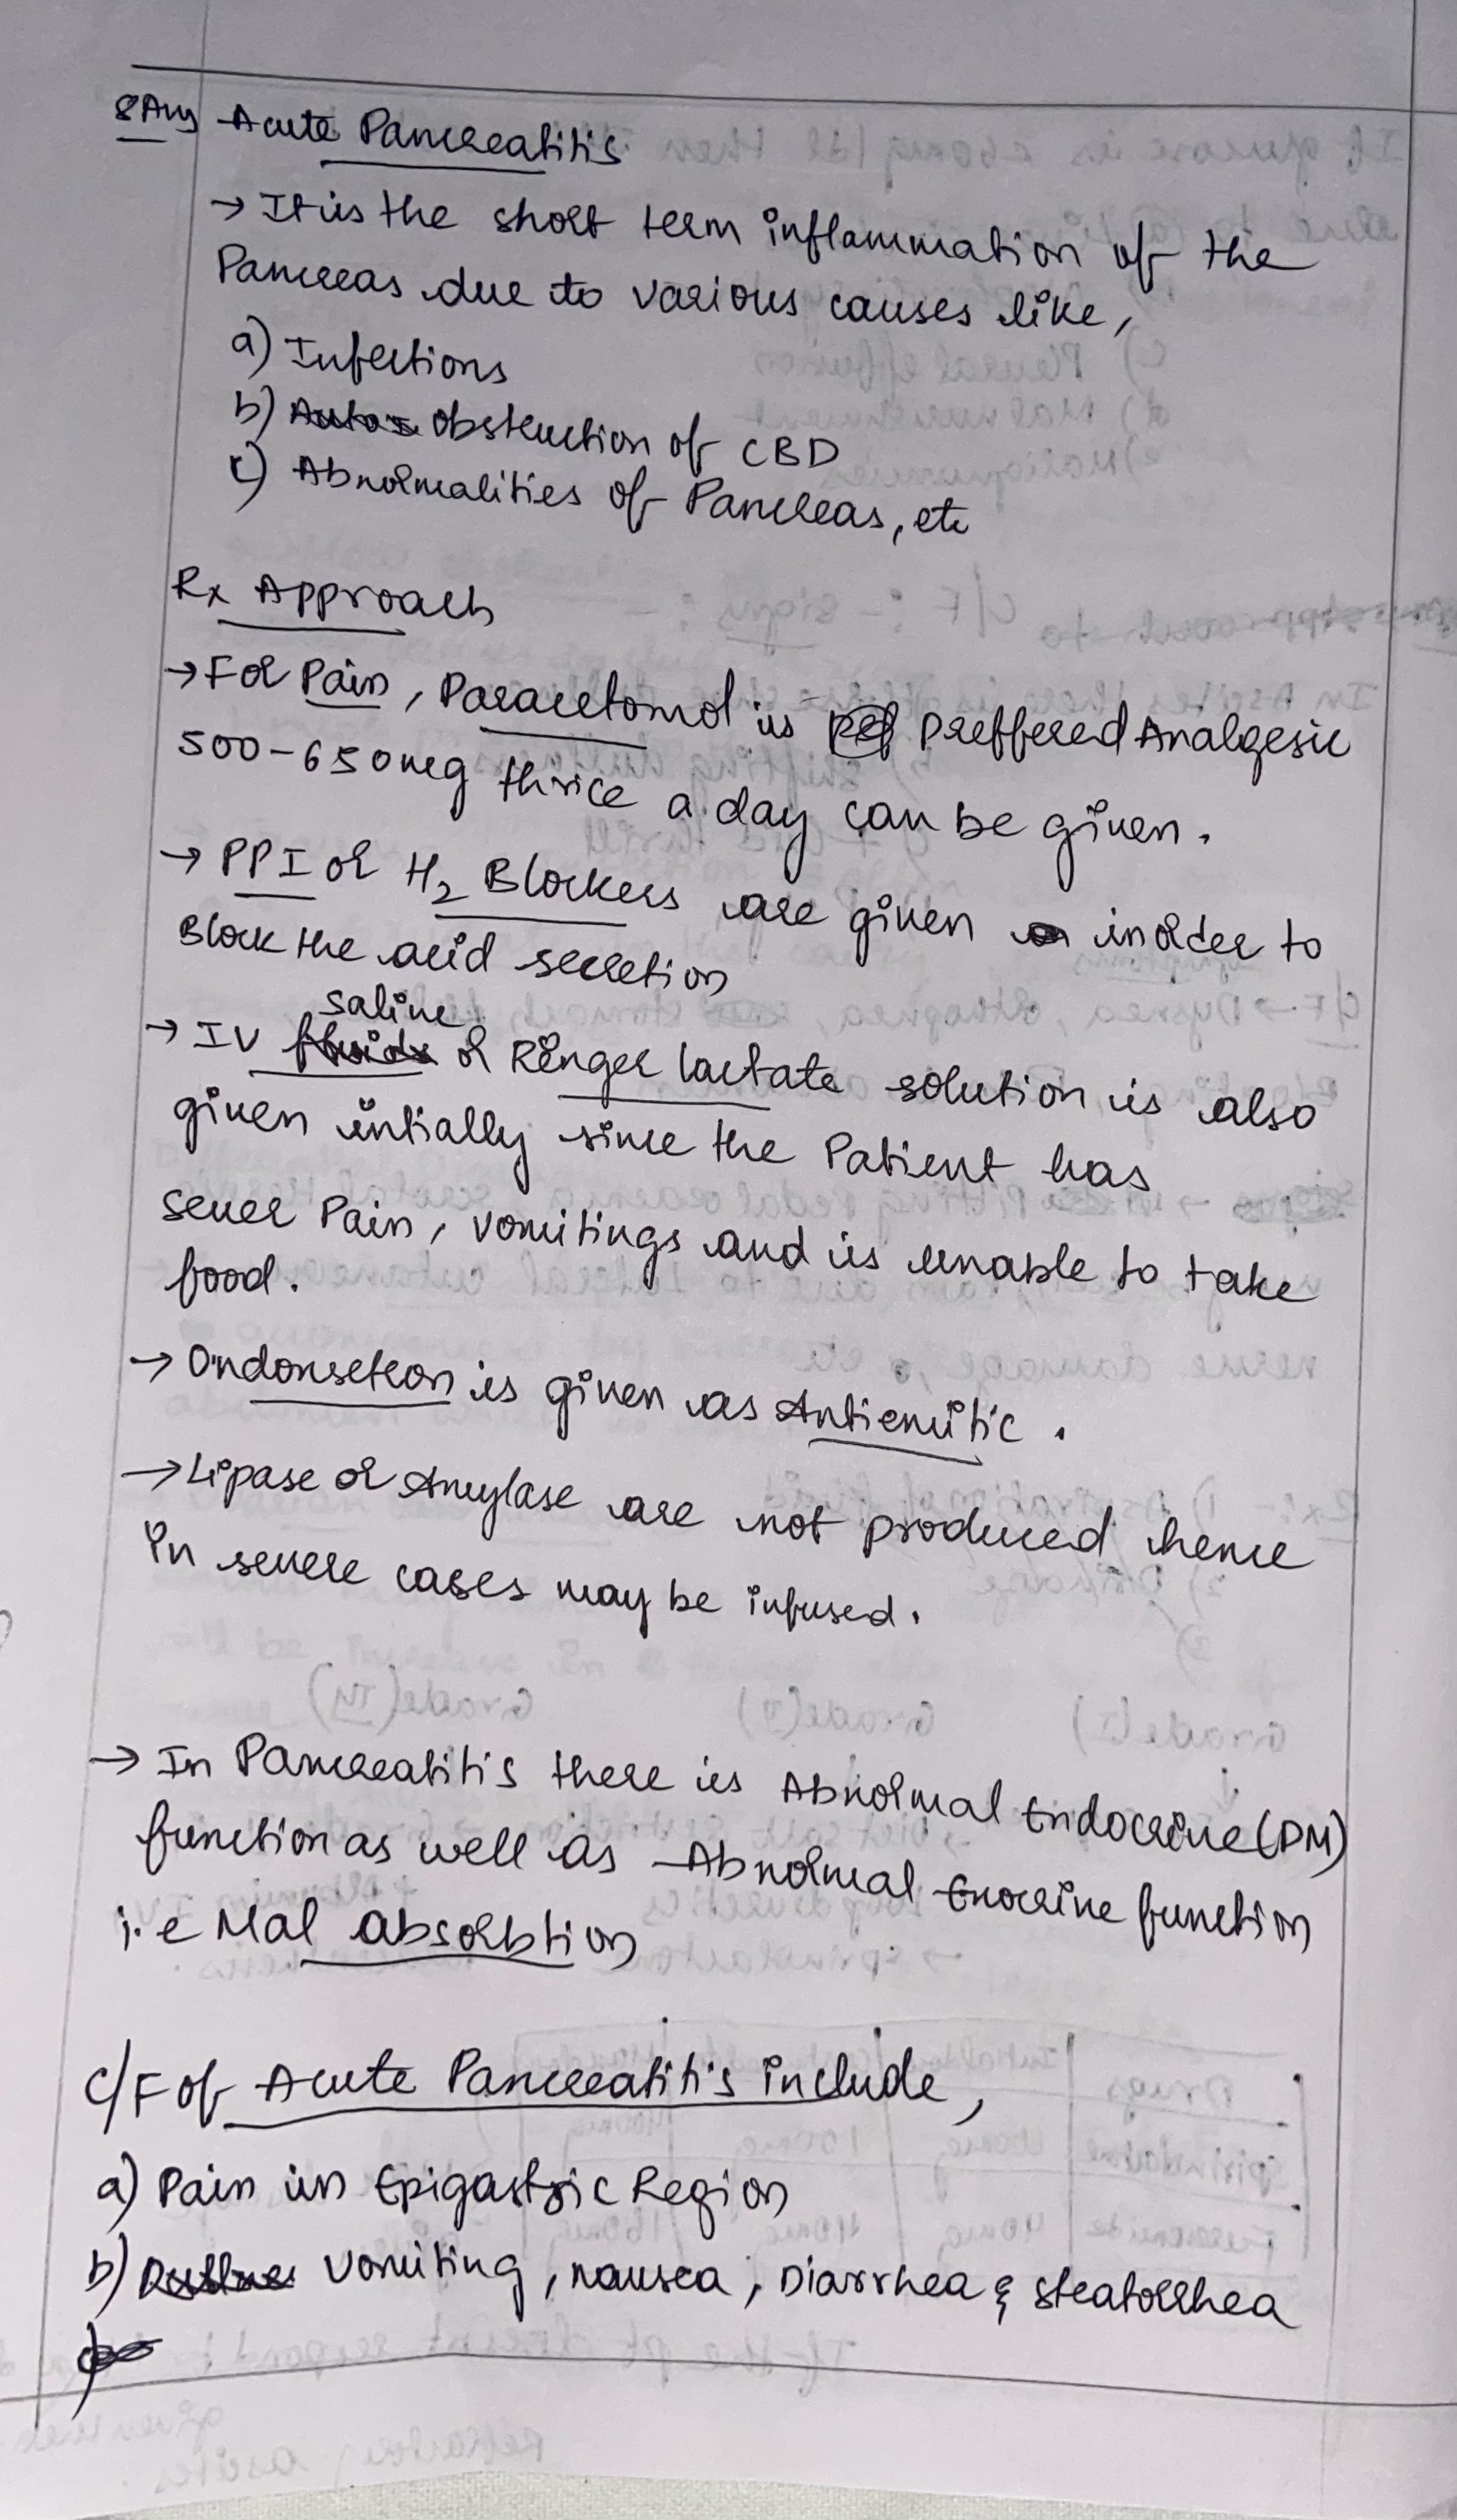 8Ans Acute Pancreatitis
→ It is the short term inflammation of the
Pancreas due to various causes like,
a) Infections
b) obstruction of CBD
c) Abnormalities of Pancreas, etc
Rx Approach
→ For Pain, Paracetomol is preffered Analgesic
500-650mg thrice a day can be given.
→ PPI or H2 Blockers are given inorder to
Block the acid secretion
saline
→ IV fluids or Ringer lactate solution is also
given intially since the Patient has
sever Pain, vomitings and is unable to take
food.
→ Ondonsetron is given as Antiemitic.
→ Lipase or Amylase are not produced hence
in severe cases may be infused.
→ In Pancreatitis there is Abnormal Endocrine (DM)
function as well as Abnormal Exocrine function
i.e Mal absorbtion
C/F of Acute Pancreatitis include,
a) Pain in Epigastric Region
b) Vomiting, nausea, Diarrhea & steatorrhea